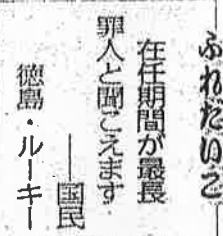 ふれたいこ
在任期間が最長
罪人と聞こえます
――国民
徳島・ルーキー